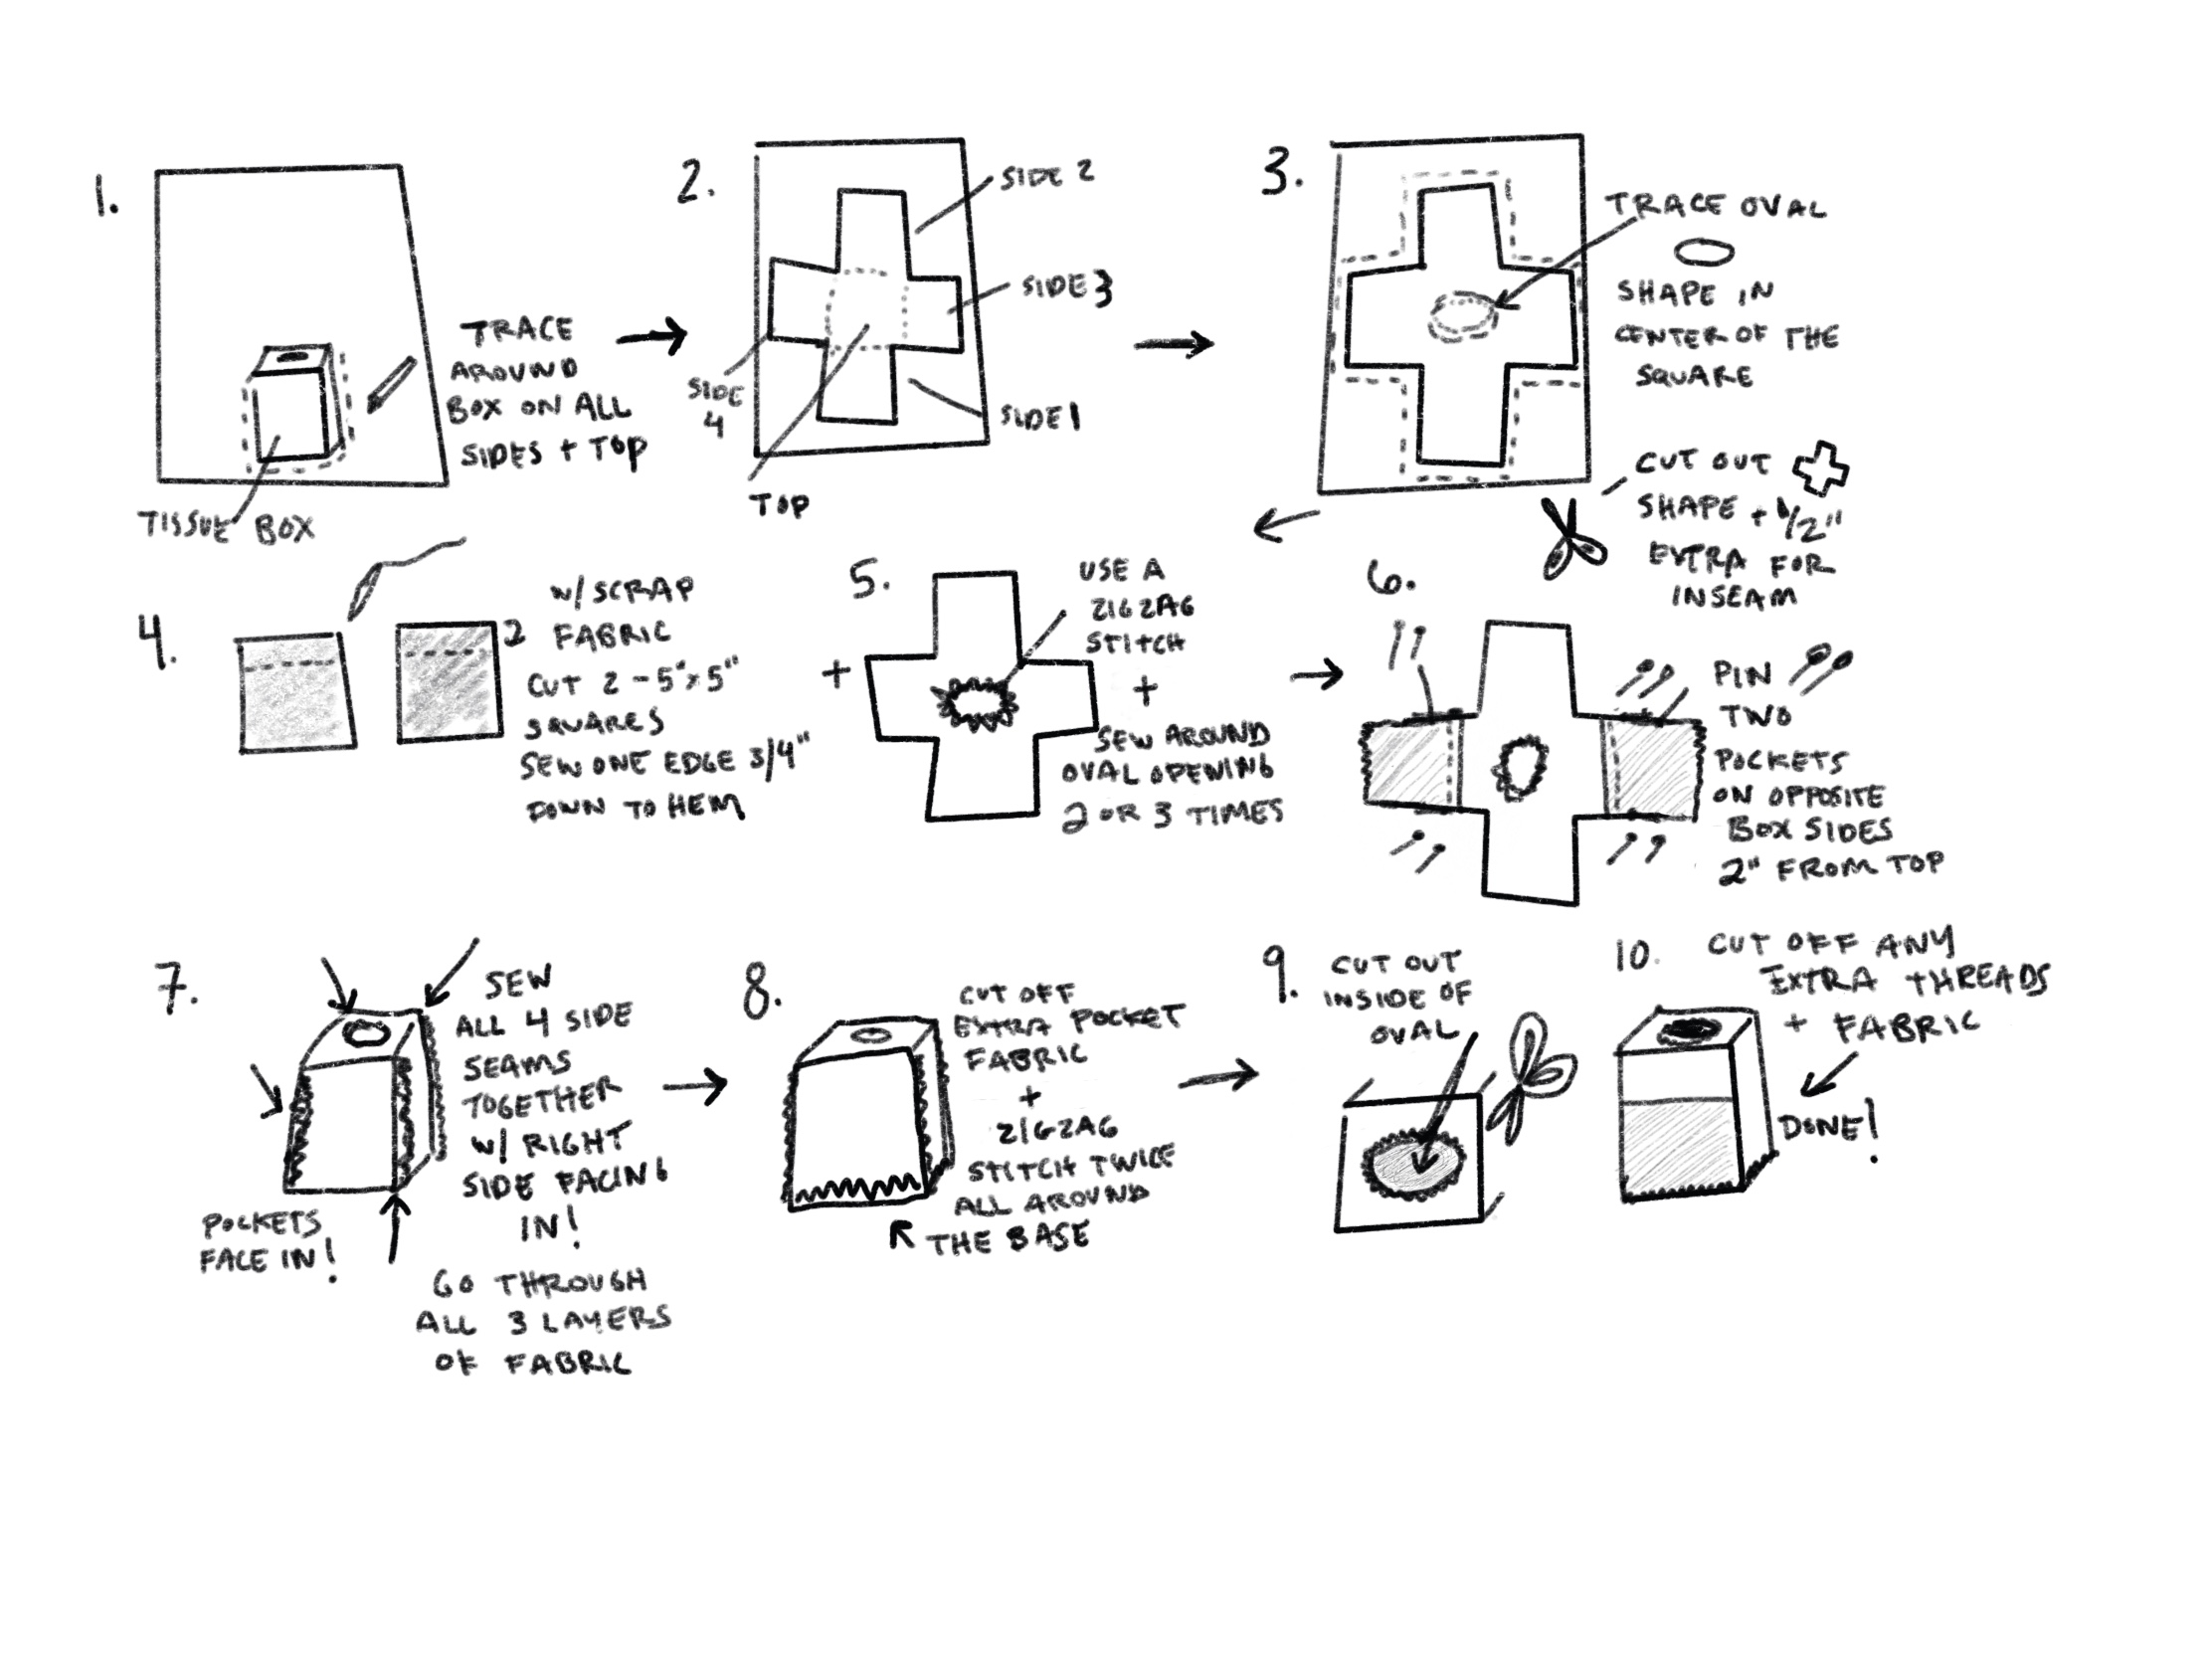 1.
TRACE
AROUND
BOX ON ALL
SIDES + TOP
TISSUE BOX
2.
SIDE 2
SIDE 3
SIDE
4
SIDE 1
TOP
3.
TRACE OVAL
SHAPE IN
CENTER OF THE
SQUARE
CUT OUT
SHAPE + 1/2"
EXTRA FOR
INSEAM
4.
2
W/ SCRAP
FABRIC
CUT 2 - 5"x5"
SQUARES
SEW ONE EDGE 3/4"
DOWN TO HEM
+
5.
USE A
ZIGZAG
STITCH
+
SEW AROUND
OVAL OPENING
2 OR 3 TIMES
6.
PIN
TWO
POCKETS
ON OPPOSITE
BOX SIDES
2" FROM TOP
7.
SEW
ALL 4 SIDE
SEAMS
TOGETHER
W/ RIGHT
SIDE FACING
IN!
POCKETS
FACE IN!
GO THROUGH
ALL 3 LAYERS
OF FABRIC
8.
CUT OFF
EXTRA POCKET
FABRIC
+
ZIGZAG
STITCH TWICE
ALL AROUND
THE BASE
9.
CUT OUT
INSIDE OF
OVAL
10.
CUT OFF ANY
EXTRA THREADS
+ FABRIC
DONE!